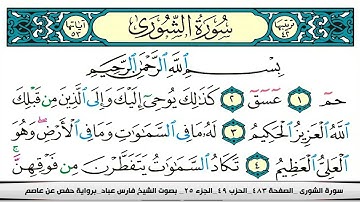 ترتيبها ٤٢ سُورَةُ الشُّورَىٰ آياتها ٥٣
بِسْمِ اللَّهِ الرَّحْمَٰنِ الرَّحِيمِ
حمٓ ١ عٓسٓقٓ ٢ كَذَٰلِكَ يُوحِىٓ إِلَيْكَ وَإِلَى الَّذِينَ مِن قَبْلِكَ
اللَّهُ الْعَزِيزُ الْحَكِيمُ ٣ لَهُۥ مَا فِى السَّمَٰوَٰتِ وَمَا فِى الْأَرْضِ ۖ وَهُوَ
الْعَلِىُّ الْعَظِيمُ ٤ تَكَادُ السَّمَٰوَٰتُ يَتَفَطَّرْنَ مِن فَوْقِهِنَّ ۚ
سورة الشورى _الصفحة ٤٨٣_الحزب ٤٩_الجزء ٢٥_ بصوت الشيخ فارس عباد_برواية حفص عن عاصم